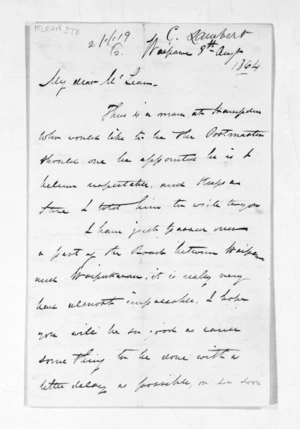 C. Lambert
Waipawa 8th Aug
1864
My dear McLean
There is a man at Hampden
who would like to be the Postmaster
should one be appointed he is I
believe respectable, and keeps a
store I told him to write to you
I have just passed over
a part of the Road between Waipawa
and Waipukurau, it is really very
bad almost impassable, I hope
you will be so good as cause
some thing to be done with as
little delay as possible, or so soon